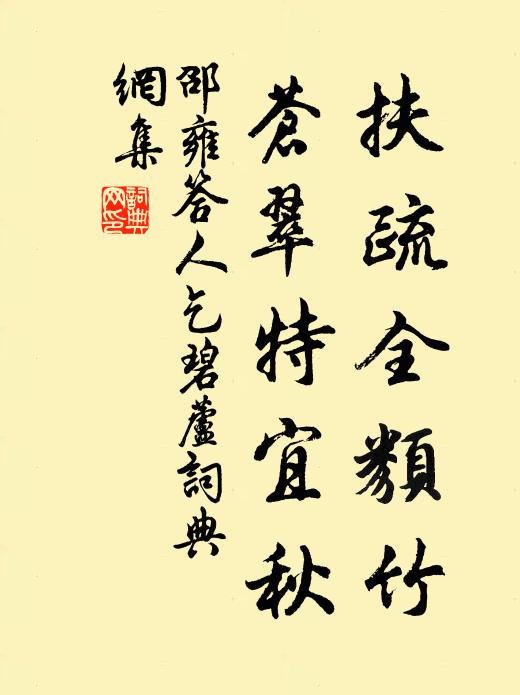 扶疏全類竹
蒼翠特宜秋
邵雍答人乞碧蘆詞典
網集
詞典
网印